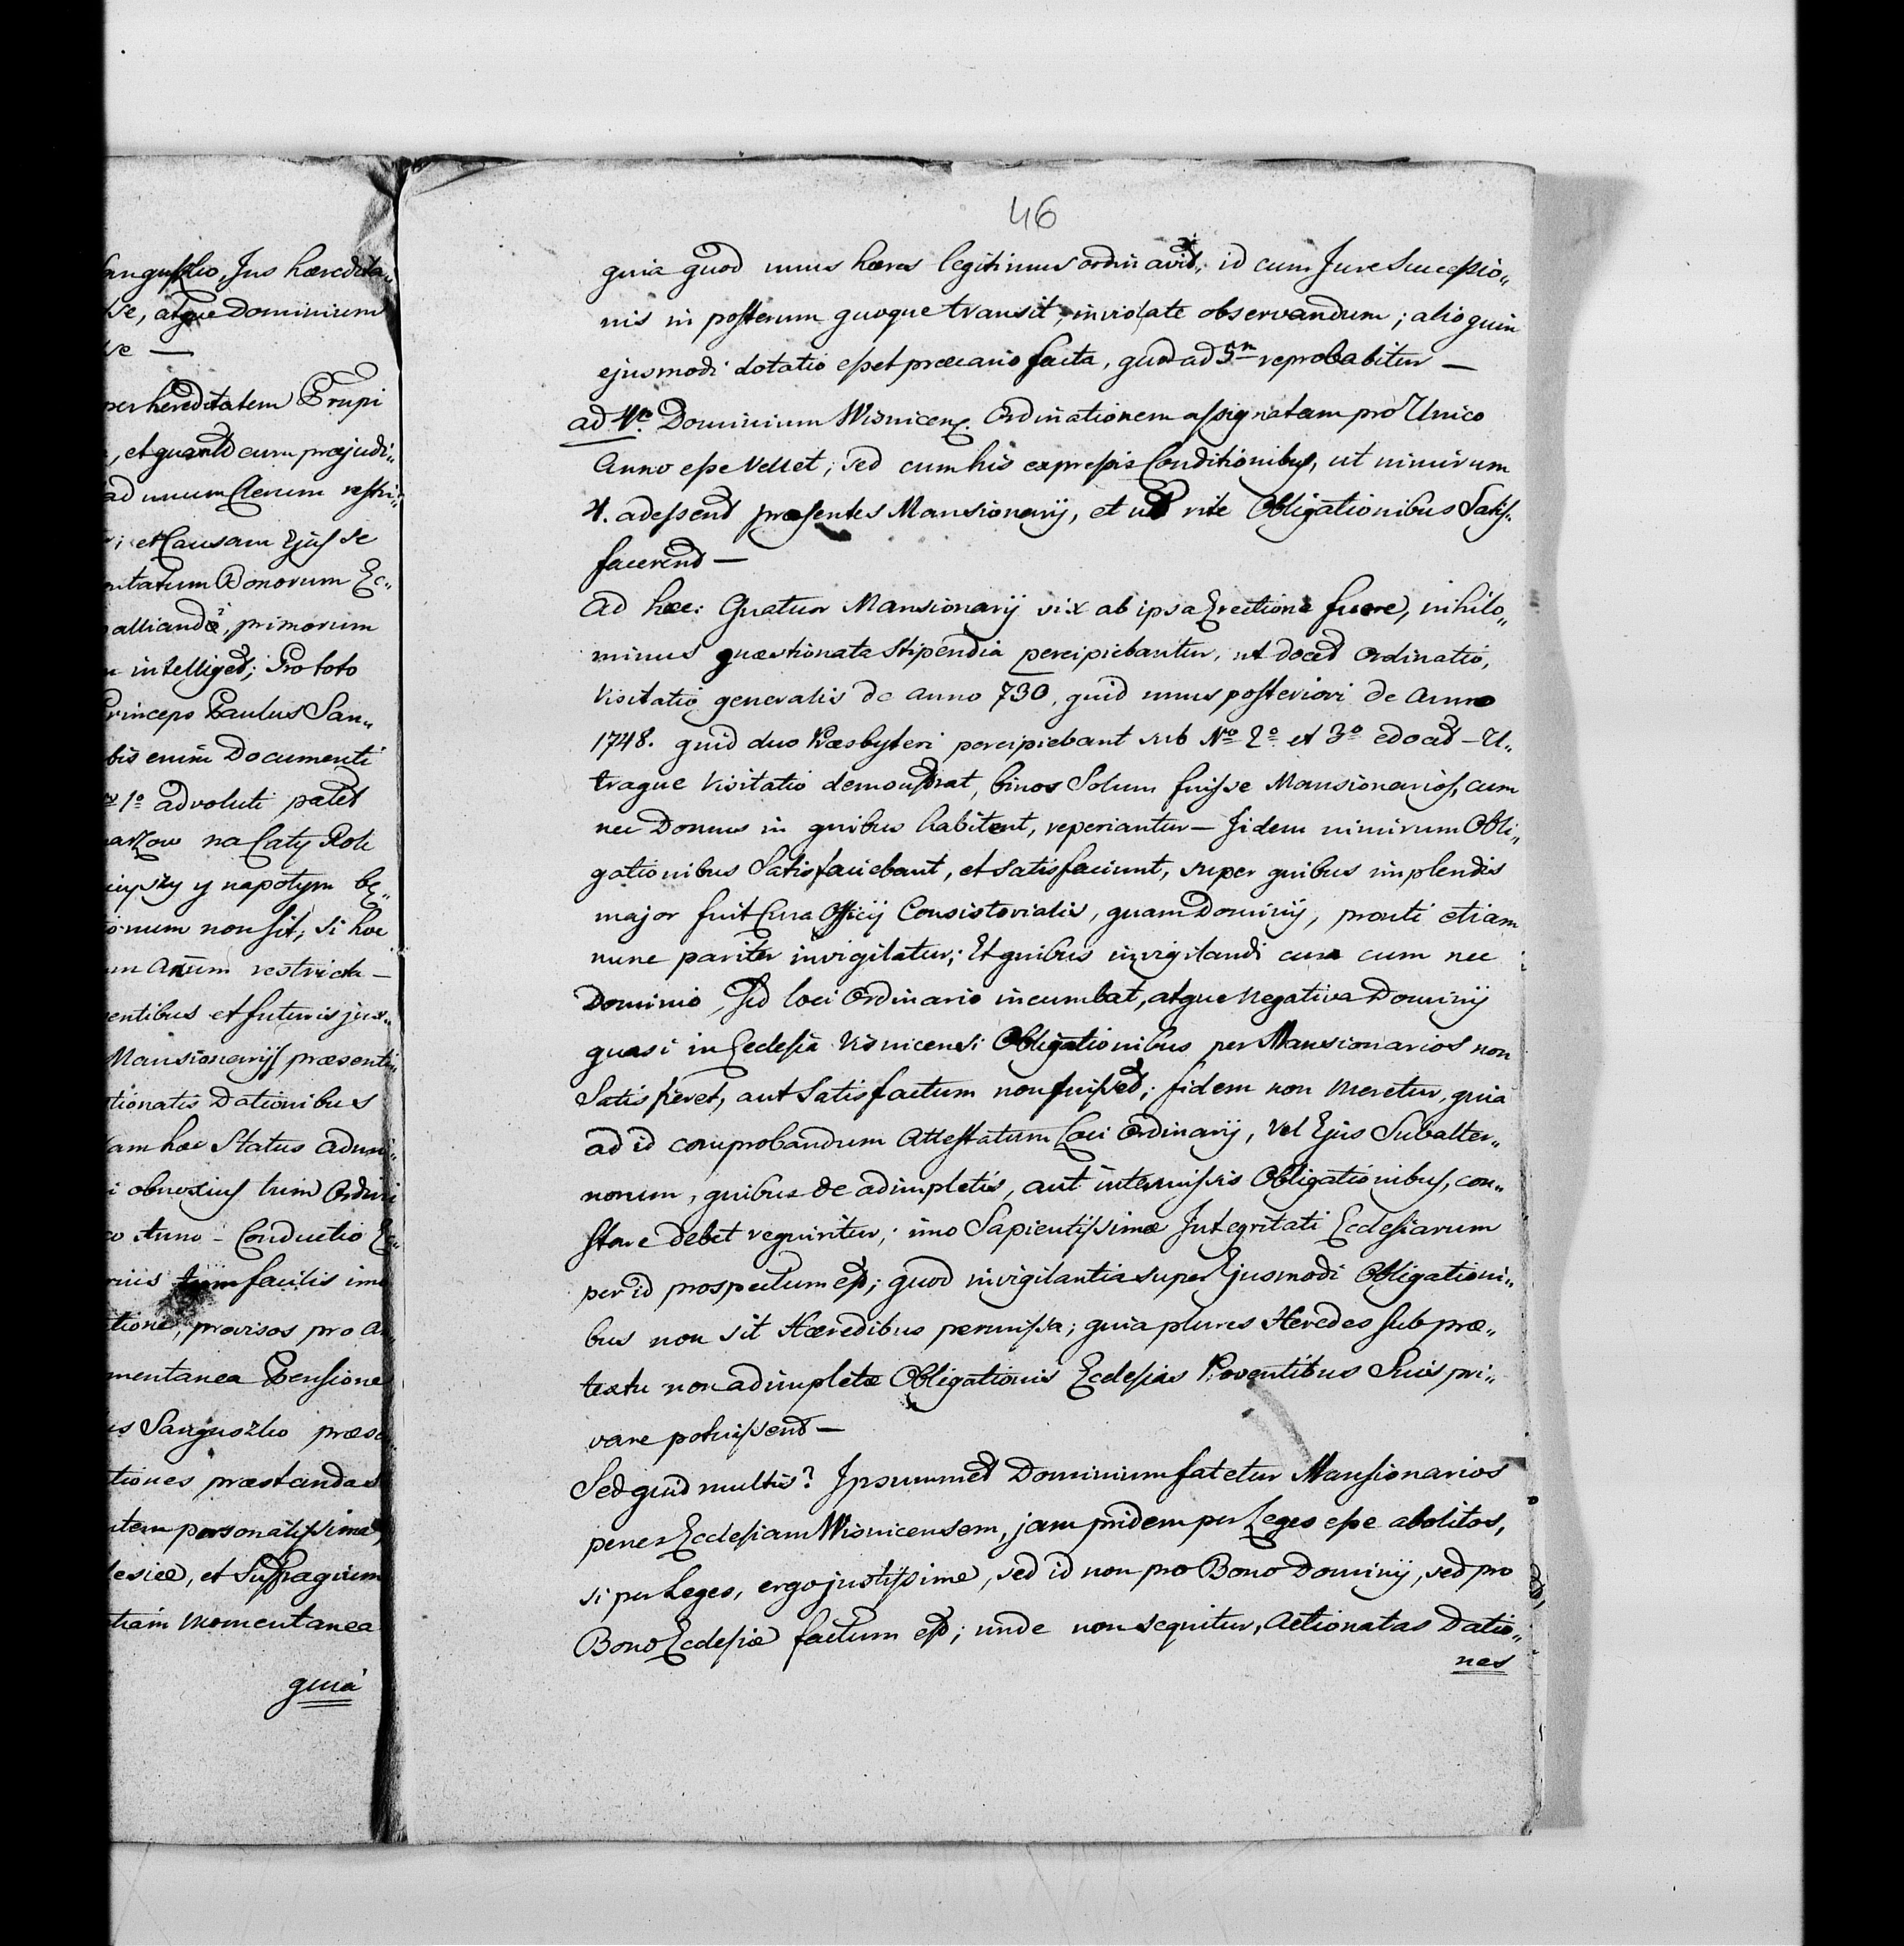 46
quia quod unus hæres legitimus ordinavit, id cum Jure Successio„
nis in posterum quoque transit, inviolate observandum; alioquin
ejusmodi dotatio esset præcario facta, quod ad 5m reprobabitur —
ad Vm Dominium Wisnicens. Ordinationem assignatam pro Unico
Anno esse Vellet; sed cum his expressis Conditionibus, ut nimirum
4. adessent præsentes Mansionarij, et ut rite Obligationibus Satis„
facerent —
Ad hæc: Quatuor Mansionarij vix ab ipsa Erectione fuere, nihilo„
minus quæstionata Stipendia percipiebantur, ut docet Ordinatio,
Visitatio generalis de anno 730, quid unus posteriori de Anno
1748. quid duo Præsbyteri percipiebant sub No 2o et 3o edocet — U„
traque Visitatio demonstrat, binos Solum fuisse Mansionarios, cum
nec Domus in quibus habitent, reperiantur — Jidem nimirum Obli„
gationibus Satisfaciebant, et satisfaciunt, super quibus implendis
major fuit Cura Officij Consistorialis, quam Dominij, prouti etiam
nunc pariter invigilatur; Et quibus invigilandi cura cum nec
Dominio, Sed loci Ordinario incumbat, atque Negativa Dominij
quasi in Ecclesia Visnicensi Obligationibus per Mansionarios non
Satis fieret, aut Satisfactum non fuisset; fidem non meretur, quia
ad id comprobandum Attestatum Loci Ordinarij, Vel Ejus Subalter„
norum, quibus de adimpletis, aut intermissis Obligationibus, con„
stare debet requiritur; imo Sapientissimæ Jntegritati Ecclesiarum
per id prospectum est; quod invigilantia super Ejusmodi Obligationi„
bus non sit Hæredibus permissa; quia plures Heredes sub præ„
textu non adimpletæ Obligationis Ecclesias Proventibus Suis pri„
vare potuissent —
Sed quid multis? Jpsummet Dominium fatetur Mansionarios
penes Ecclesiam Wisnicensem, jam pridem per Leges esse abolitos,
si per Leges, ergo justissime, sed id non pro Bono Dominij, sed pro
Bono Ecclesiæ factum est; unde non sequitur, Actionatas Datio„
nes
Sanguszko, Jus hæredita„
atque Dominium
per hereditatem Trupi
, et quando cum præjudi„
ad unum Annum restri„
; et Causam Ejus se
Bonorum Ec„
primorum
intelliget; Pro toto
Princeps Paulus San„
bis enim Documenti
1o advoluti patet
na Caty Rok
y napotym bę„
num non sit, si hoc
um Anum restricta —
entibus et futuris jux„
Mansionarijs præsenti„
tionatis Dationibus
am hæc Status adum„
i obnoxius tum Ordini
o Anno — Conductio
facilis imo
tione, provisos pro
mentanea Pensione
us Sanguszko
tiones præstandas
tem personalissima,
lesiæ, et Suffragium
tiam momentanea
quia